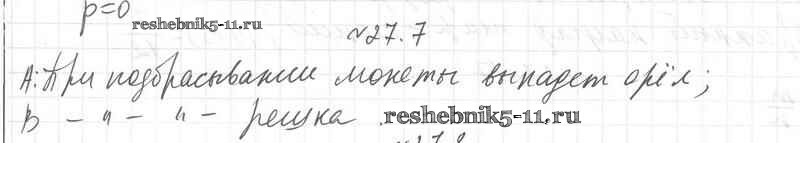 p=0
reshebnik5-11.ru
№27.7
А: При подбрасывании монеты выпадет орёл;
В – " – " – решка.
reshebnik5-11.ru